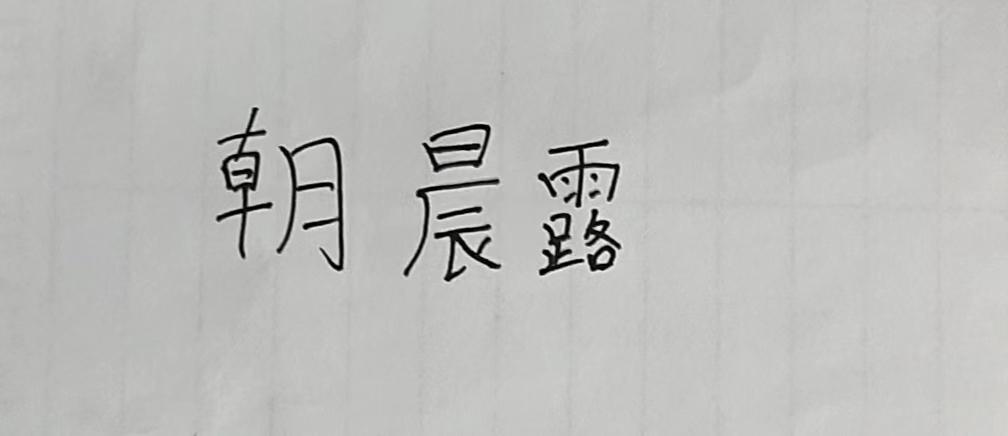 朝晨露